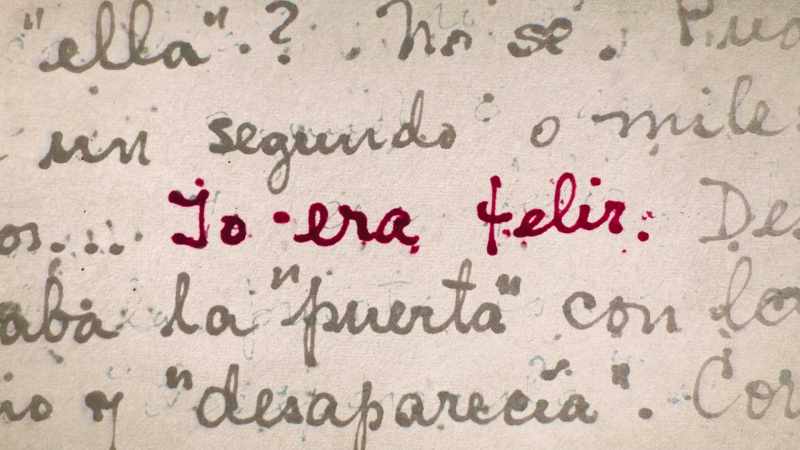 "ella".? No se.
un segundo o mile
os... Yo era feliz. Des
aba la "puerta" con la
io y "desaparecía". Cor